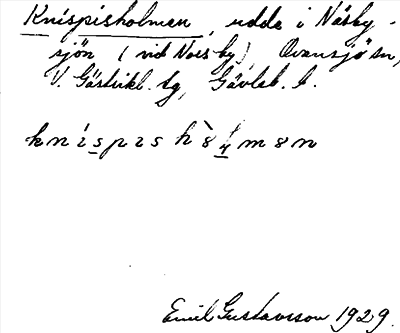 Knispisholmen, udde i Näsby-
sjön (vid Norsby), Ovansjö sn,
V. Gästrikl. tg, Gävleb. l.
Emil Gustavsson 1929.